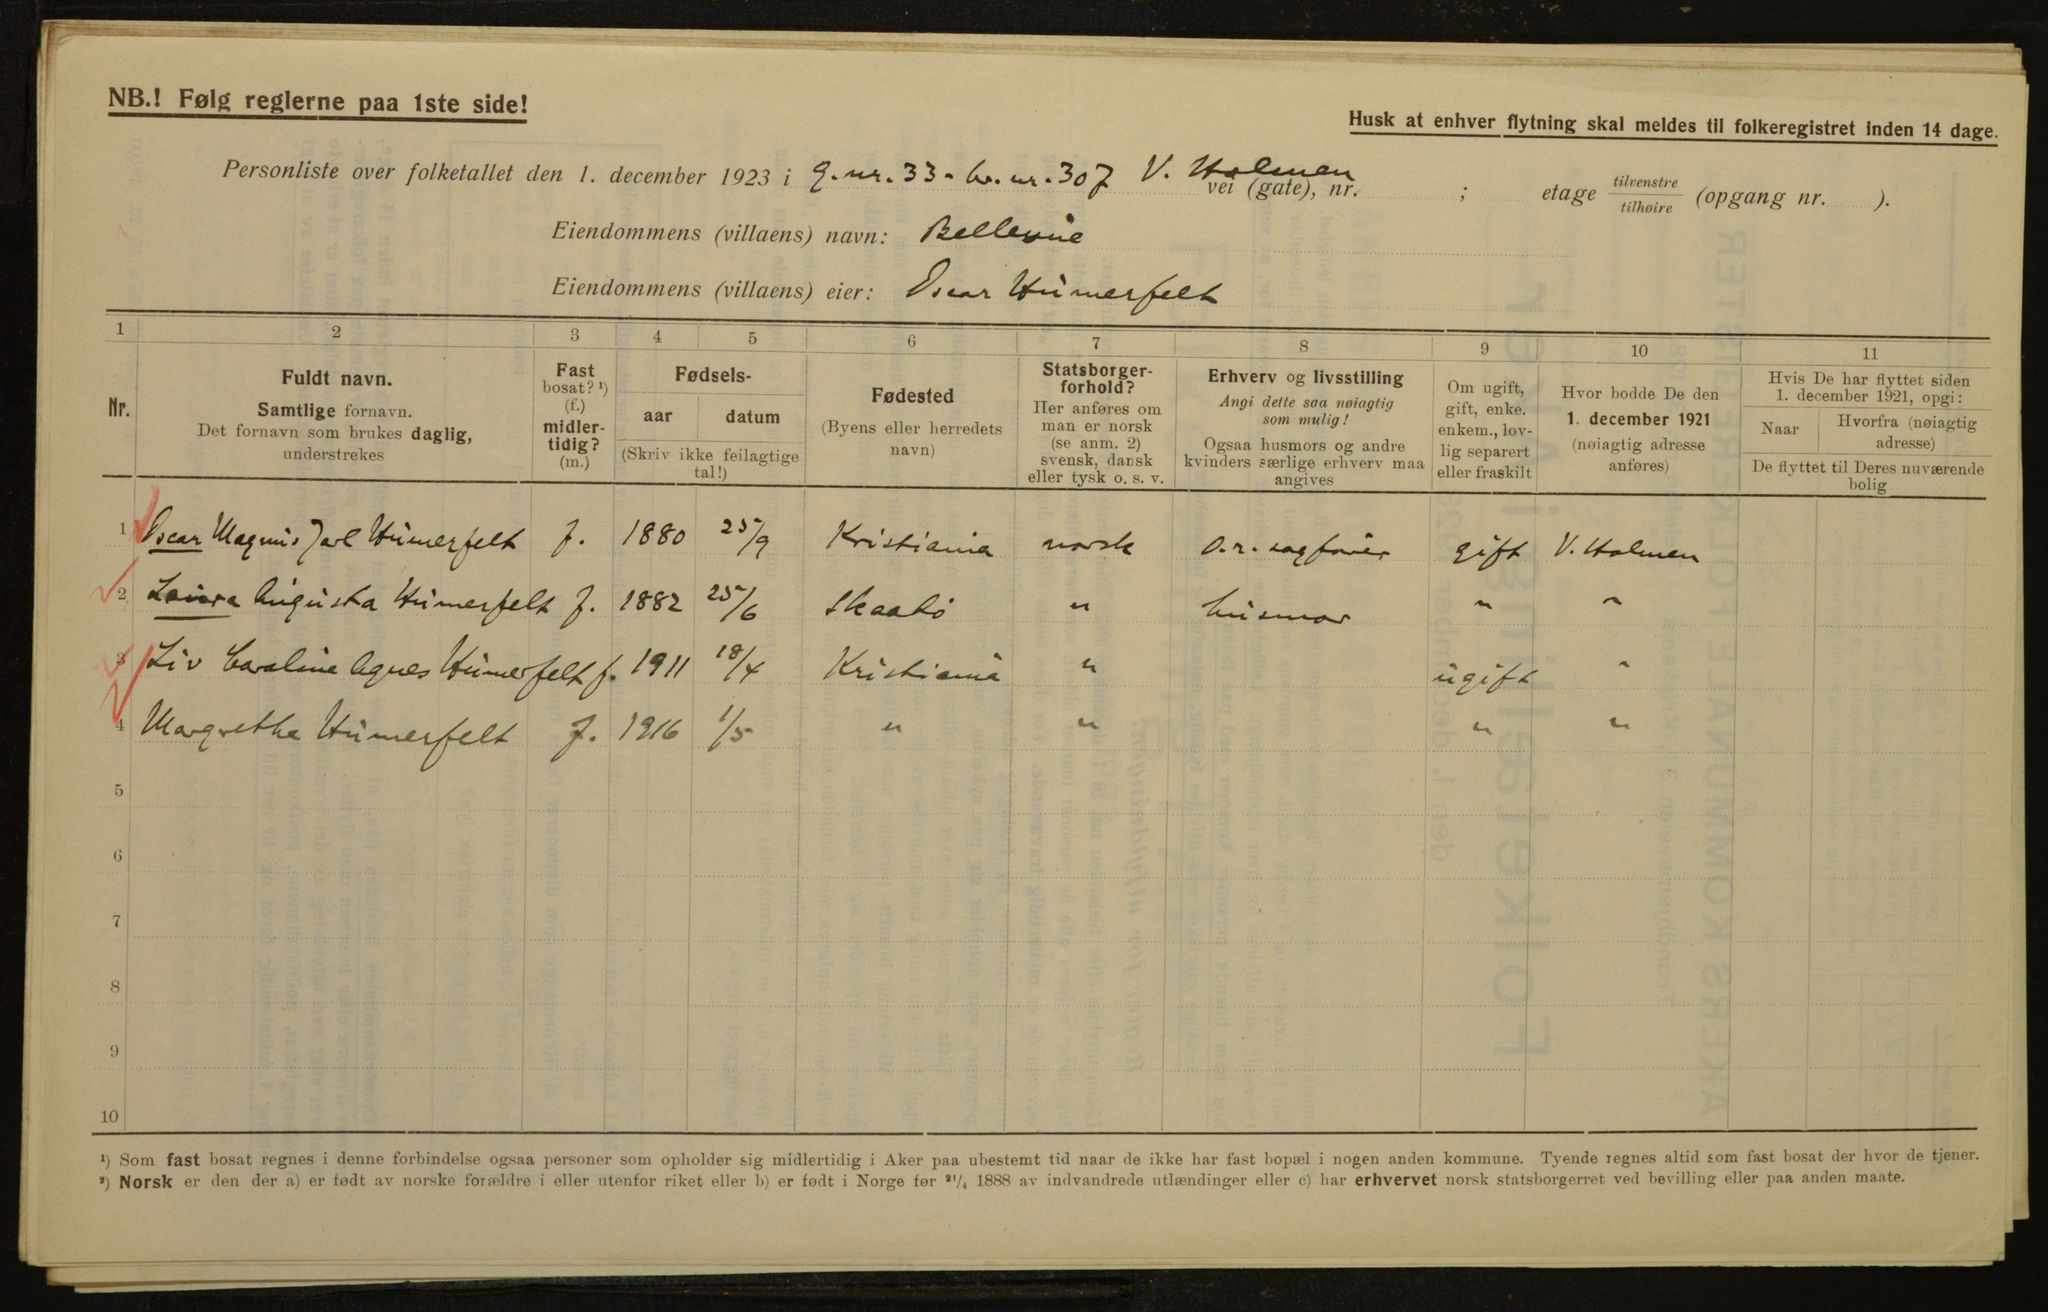 NB.! Følg reglerne paa 1ste side!
Husk at enhver flytning skal meldes til folkeregistret inden 14 dage.
Personliste over folketallet den 1. december 1923 i g.nr. 33 - br.nr. 307 V. Holmen vei (gate), nr. ; etage tilvenstre / tilhøire (opgang nr. ).
Eiendommens (villaens) navn: Bellevue
Eiendommens (villaens) eier: Oscar Humerfelt
1 2 3 4 5 6 7 8 9 10 11
Nr.
Fuldt navn.
Samtlige fornavn.
Det fornavn som brukes daglig,
understrekes
Fast
bosat? ¹)
(f.)
midler-
tidig?
(m.)
Fødsels-
aar datum
(Skriv ikke feilagtige
tal!)
Fødested
(Byens eller herredets
navn)
Statsborger-
forhold?
Her anføres om
man er norsk
(se anm. 2)
svensk, dansk
eller tysk o. s. v.
Erhverv og livsstilling
Angi dette saa nøiagtig
som mulig!
Ogsaa husmors og andre
kvinders særlige erhverv maa
angives
Om ugift,
gift, enke.
enkem., lov-
lig separert
eller fraskilt
Hvor bodde De den
1. december 1921
(nøiagtig adresse
anføres)
Hvis De har flyttet siden
1. december 1921, opgi:
Naar
Hvorfra (nøiagtig
adresse)
De flyttet til Deres nuværende
bolig
1 Oscar Magnus Jarl Humerfelt f. 1880 25/9 Kristiania norsk o.r. sagfører gift V. Holmen
2 Laura Augusta Humerfelt f. 1882 25/6 Skaabo " husmor " "
3 Liv Caroline Agnes Humerfelt f. 1911 18/4 Kristiania " ugift "
4 Margrethe Humerfelt f. 1916 1/5 " " " "
5
6
7
8
9
10
¹) Som fast bosat regnes i denne forbindelse ogsaa personer som opholder sig midlertidig i Aker paa ubestemt tid naar de ikke har fast bopæl i nogen anden kommune. Tyende regnes altid som fast bosat der hvor de tjener.
²) Norsk er den der a) er født av norske forældre i eller utenfor riket eller b) er født i Norge før ²¹/₄ 1888 av indvandrede utlændinger eller c) har erhvervet norsk statsborgerret ved bevilling eller paa anden maate.